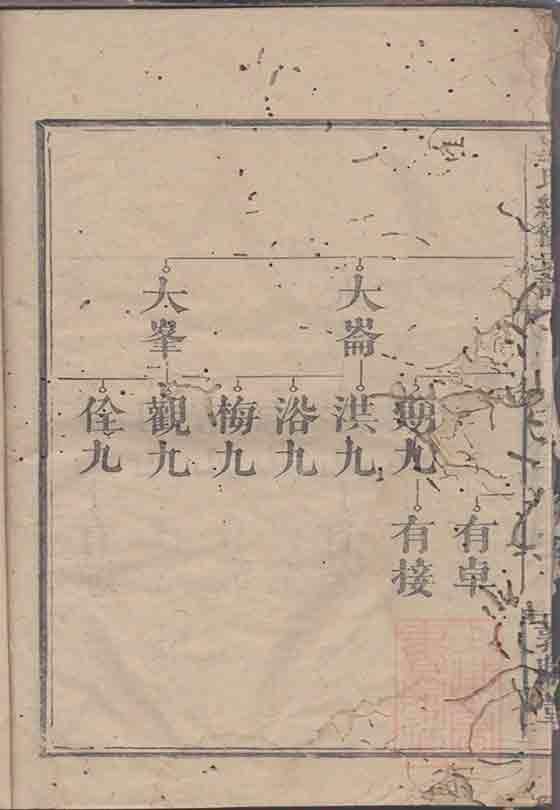 大崙
大峯
期九
洪九
沿九
梅九
觀九
佺九
有卓
有接